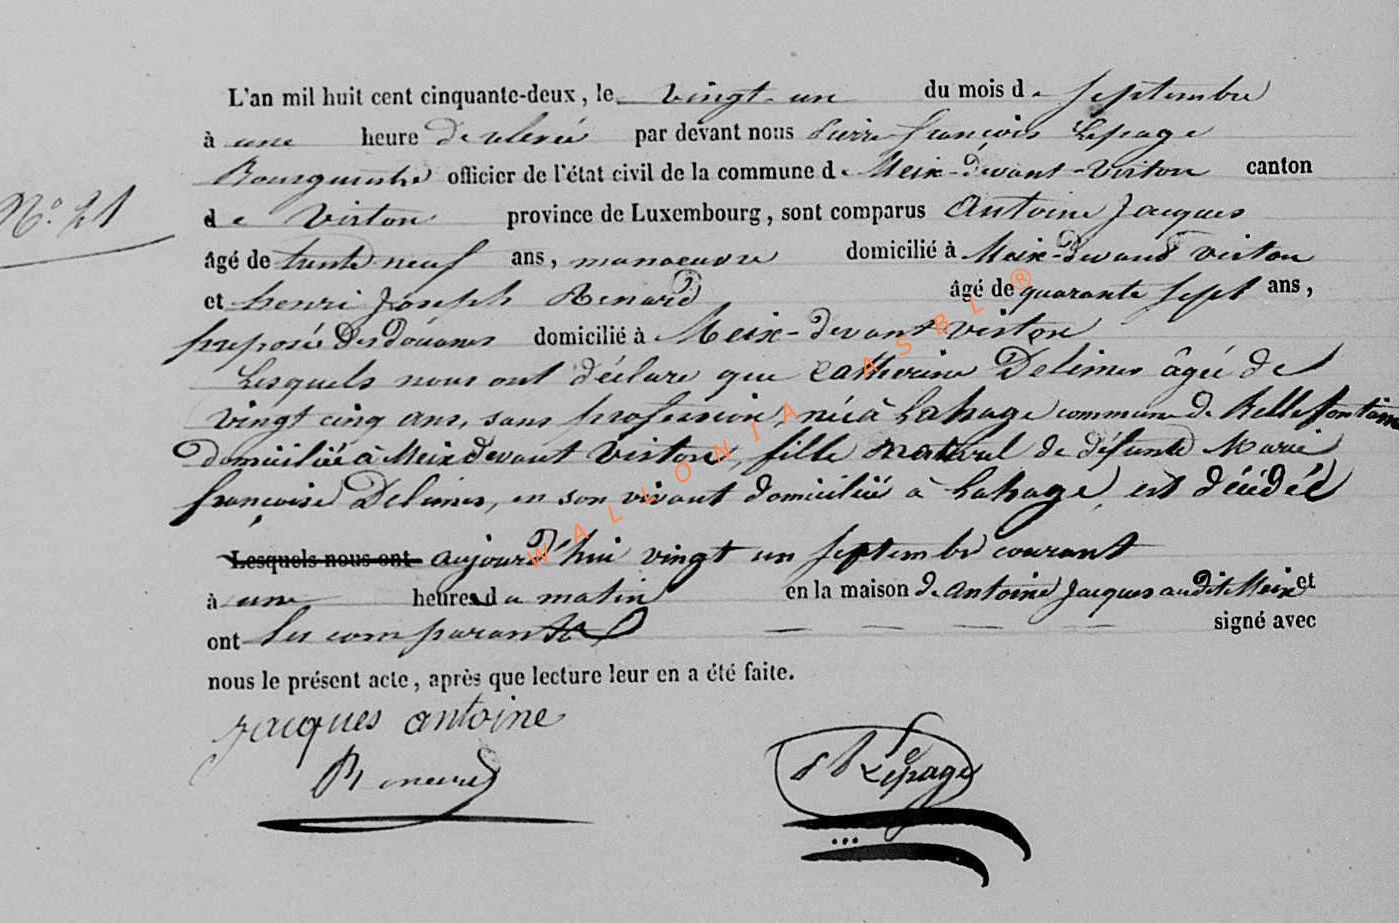 L'an mil huit cent cinquante-deux, le vingt-un du mois de septembre
à une heure de relevée par devant nous Pierre françois Lepage
Bourguemtre officier de l'état civil de la commune de Meix-devant-Virton canton
de Virton province de Luxembourg, sont comparus Antoine Jacques
N° 21
âgé de trente neuf ans, manoeuvre domicilié à Meix-devant virton
et henri Joseph Renard âgé de quarante sept ans,
preposé des douanes domicilié à Meix-devant virton
Lesquels nous ont déclaré que Catherine Delimes âgée de
vingt cinq ans, sans profession, née à Lahage commune de Bellefontaine
domiciliée à Meix devant Virton, fille naturel de défunte Marie
françoise Delimes, en son vivant domiciliée à Lahage, est décédée
Lesquels nous ont aujourd'hui vingt un septembre courant
à une heures du matin en la maison de antoine Jacques audit Meix et
ont les comparants signé avec
nous le présent acte, après que lecture leur en a été faite.
Jacques antoine
Renard
Lepage
WALLONIA ASBL ®